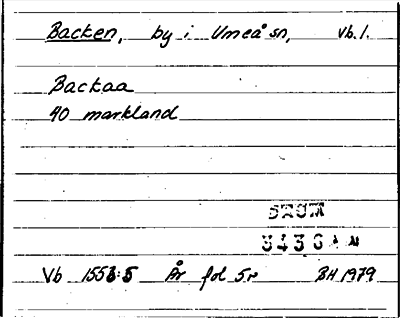 Backen, by i Umeå sn, Vb. l.
Backaa
40 markland
DAUM
3436
Vb 1553:5 År fol 5r BH 1979